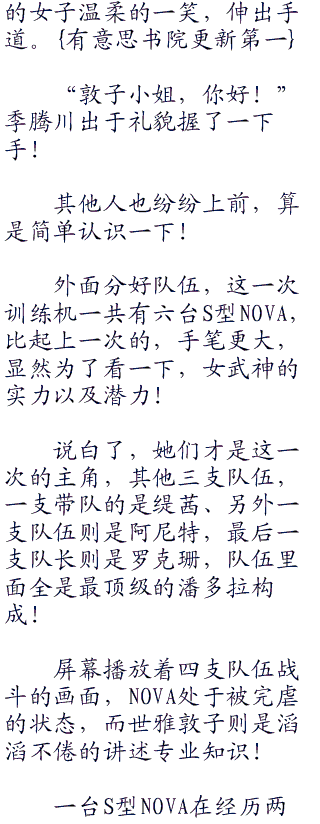 的女子温柔的一笑，伸出手
道。{有意思书院更新第一}
“敦子小姐，你好！”
季腾川出于礼貌握了一下
手！
其他人也纷纷上前，算
是简单认识一下！
外面分好队伍，这一次
训练机一共有六台S型NOVA，
比起上一次的，手笔更大，
显然为了看一下，女武神的
实力以及潜力！
说白了，她们才是这一
次的主角，其他三支队伍，
一支带队的是缇茜、另外一
支队伍则是阿尼特，最后一
支队长则是罗克珊，队伍里
面全是最顶级的潘多拉构
成！
屏幕播放着四支队伍战
斗的画面，NOVA处于被完虐
的状态，而世雅敦子则是滔
滔不倦的讲述专业知识！
一台S型NOVA在经历两